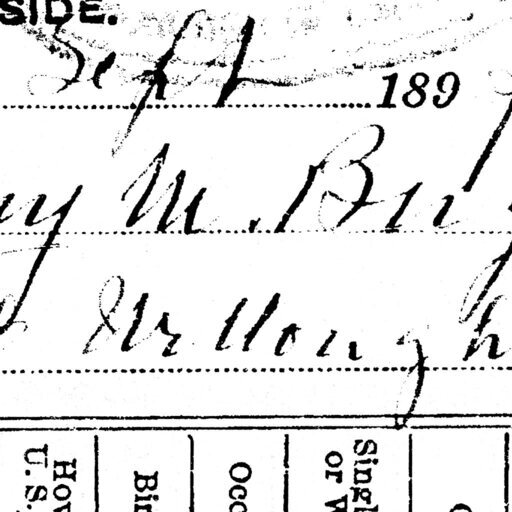 SIDE.
Sept 189
M. Bur
Willough
Hov
U. S.
Bir
Occ
Singl
or W